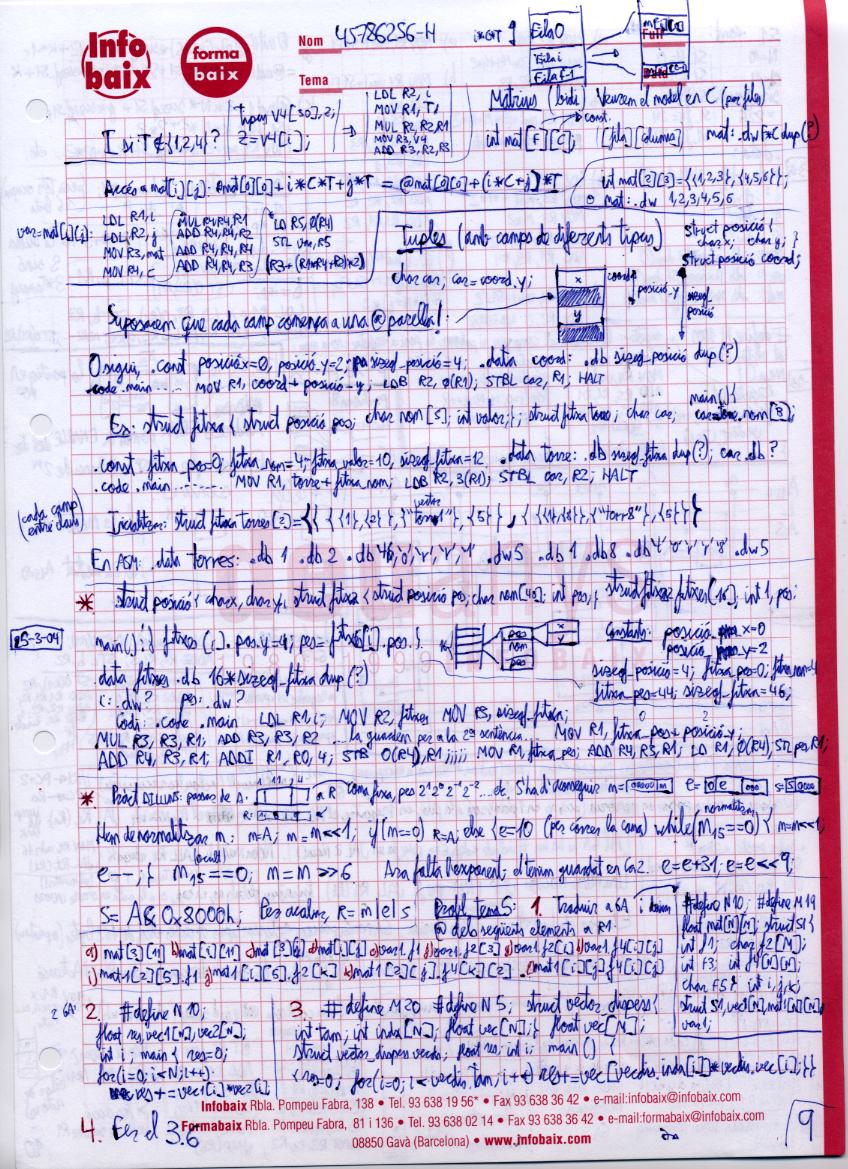 Info baix
forma baix
Nom 45786256-H
Tema
Full
Fila 0
Fila i
Fila f-1
[ si T∉{1,2,4}?
tipus v4[50], z;
z=v4[i];
LDL R2, i
MOV R1, T
MUL R2, R2, R1
MOV R3, v4
ADD R3, R2, R3
Matrius (bidi) Veurem el model en C (per files)
const.
int mat[F][C]; [fila][columna] mat: .dw F*C dup(?)
Accés a mat[i][j]: @mat[0][0] + i*C*T + j*T = @mat[0][0] + (i*C+j)*T
int mat[2][3]={{1,2,3},{4,5,6}};
mat: .dw 1,2,3,4,5,6
var=mat[i][j];
LDL R1, i
LDL R2, j
MOV R3, mat
MOV R4, C
MUL R4, R4, R1
ADD R4, R4, R2
ADD R4, R4, R4
ADD R4, R4, R3
LD R5, 0(R4)
STL var, R5
(R3+(R1*R4+R2)*2)
Tuples (amb camps de diferents tipus)
struct posició {
char x; char y; }
struct posició coord;
char car; car=coord.y;
x
y
coord
posició_y
sizeof_posició
Suposarem que cada camp comença a una @ parella!
O sigui, .const posició_x=0, posició_y=2; sizeof_posició=4; .data coord: .db sizeof_posició dup(?)
.code .main ..... MOV R1, coord + posició_y; LDB R2, 0(R1); STBL car, R1; HALT
Ex: struct fitxa { struct posició pos; char nom[5]; int valor; }; struct fitxa torre; char car;
main(){
car=torre.nom[3];
.const fitxa_pos=0, fitxa_nom=4; fitxa_valor=10, sizeof_fitxa=12 .data torre: .db sizeof_fitxa dup(?); car .db ?
.code .main ........ MOV R1, torre+fitxa_nom; LDB R2, 3(R1); STBL car, R2; HALT
(cada camp entre claus)
vector
Inicialitzar: struct fitxa torres[2]={{ {{1},{2}}, {"Torr1"}, {5} }, { {{1},{8}}, {"torr8"}, {5} }}
En ASM: .data torres: .db 1 .db 2 .db 't','o','r','r','1' .dw 5 .db 1 .db 8 .db 't' 'o' 'r' 'r' '8' .dw 5
* struct posició { char x, char y}; struct fitxa { struct posició pos; char nom[40]; int pes; } struct fitxa fitxes[16]; int i, pes;
15-3-04
main() { fitxes[i].pos.y=4; pes=fitxes[i].pes }
pos
nom
pes
x
y
Constants: posició_x=0
posició_y=2
.data fitxes .db 16*sizeof_fitxa dup(?)
sizeof_posició=4; fitxa_pos=0; fitxa_nom=4
i: .dw ? pes: .dw ?
fitxa_pes=44; sizeof_fitxa=46;
Codi: .code .main LDL R1, i; MOV R2, fitxes MOV R3, sizeof_fitxa;
MUL R3, R3, R1; ADD R3, R3, R2 ... la guardem per a la 2ª sentència... MOV R1, fitxa_pos+posició_y;
ADD R4, R3, R1; ADDI R1, R0, 4; STB 0(R4), R1;;;;; MOV R1, fitxa_pes; ADD R4, R3, R1; LD R1, 0(R4); STL pes, R1;
* Probl DILLUNS: passar de A. a R coma fixa, pes 2¹ 2⁰ 2⁻¹ 2⁻² ... de S'ha d'aconseguir m= 00000 m e= 0 e 000 s= S 0000
normalitzar
Hem de normalitzar m: m=A; m=m<<1; if(m==0) R=A; else {e=10 (per córrer la coma) while(m15==0) { m=m<<1
(ocult)
e--; } m15==0; m=m>>6 Ara falta l'exponent; el tenim guardat en Ca2. e=e+31; e=e<<9;
S=A&0x8000h; Per acabar, R=m|e|s
Probl tema 5: 1. Traduir a 6A i
@ dels següents elements a R1.
#define N 10; #define M 19
float mat[N][M]; struct S1{
int f1; char f2[M];
int f3; int f4[N][M];
char f5} int i,j,k;
struct S1, vec1[N], mat1[N][M],
var1;
a) mat[3][11] b) mat[i][11] c) mat[3][j] d) mat[i][j] e) var1.f1 f) var1.f2[3] g) var1.f2[i] h) var1.f4[i][j]
i) mat1[2][5].f1 j) mat1[i][5].f2[k] k) mat1[2][j].f4[k][2] l) mat1[i][j].f4[i][j]
2 6A:
2. #define N 10;
float res, vec1[N], vec2[N];
int i; main { res=0;
for(i=0; i<N; i++)
res+=vec1[i]*vec2[i];
3. #define M 20 #define N 5; struct vector_dispers{
int tam; int index[N]; float vec[N];} float vec[M];
struct vector_dispers vecdis; float res; int i; main() {
{res=0; for(i=0; i<vecdis.tam; i++) res+=vec[vecdis.index[i]]*vecdis.vec[i];}}
4. Ex el 3.6
Infobaix Rbla. Pompeu Fabra, 138 • Tel. 93 638 19 56* • Fax 93 638 36 42 • e-mail:infobaix@infobaix.com
Formabaix Rbla. Pompeu Fabra, 81 i 136 • Tel. 93 638 02 14 • Fax 93 638 36 42 • e-mail:formabaix@infobaix.com
08850 Gavà (Barcelona) • www.infobaix.com
9